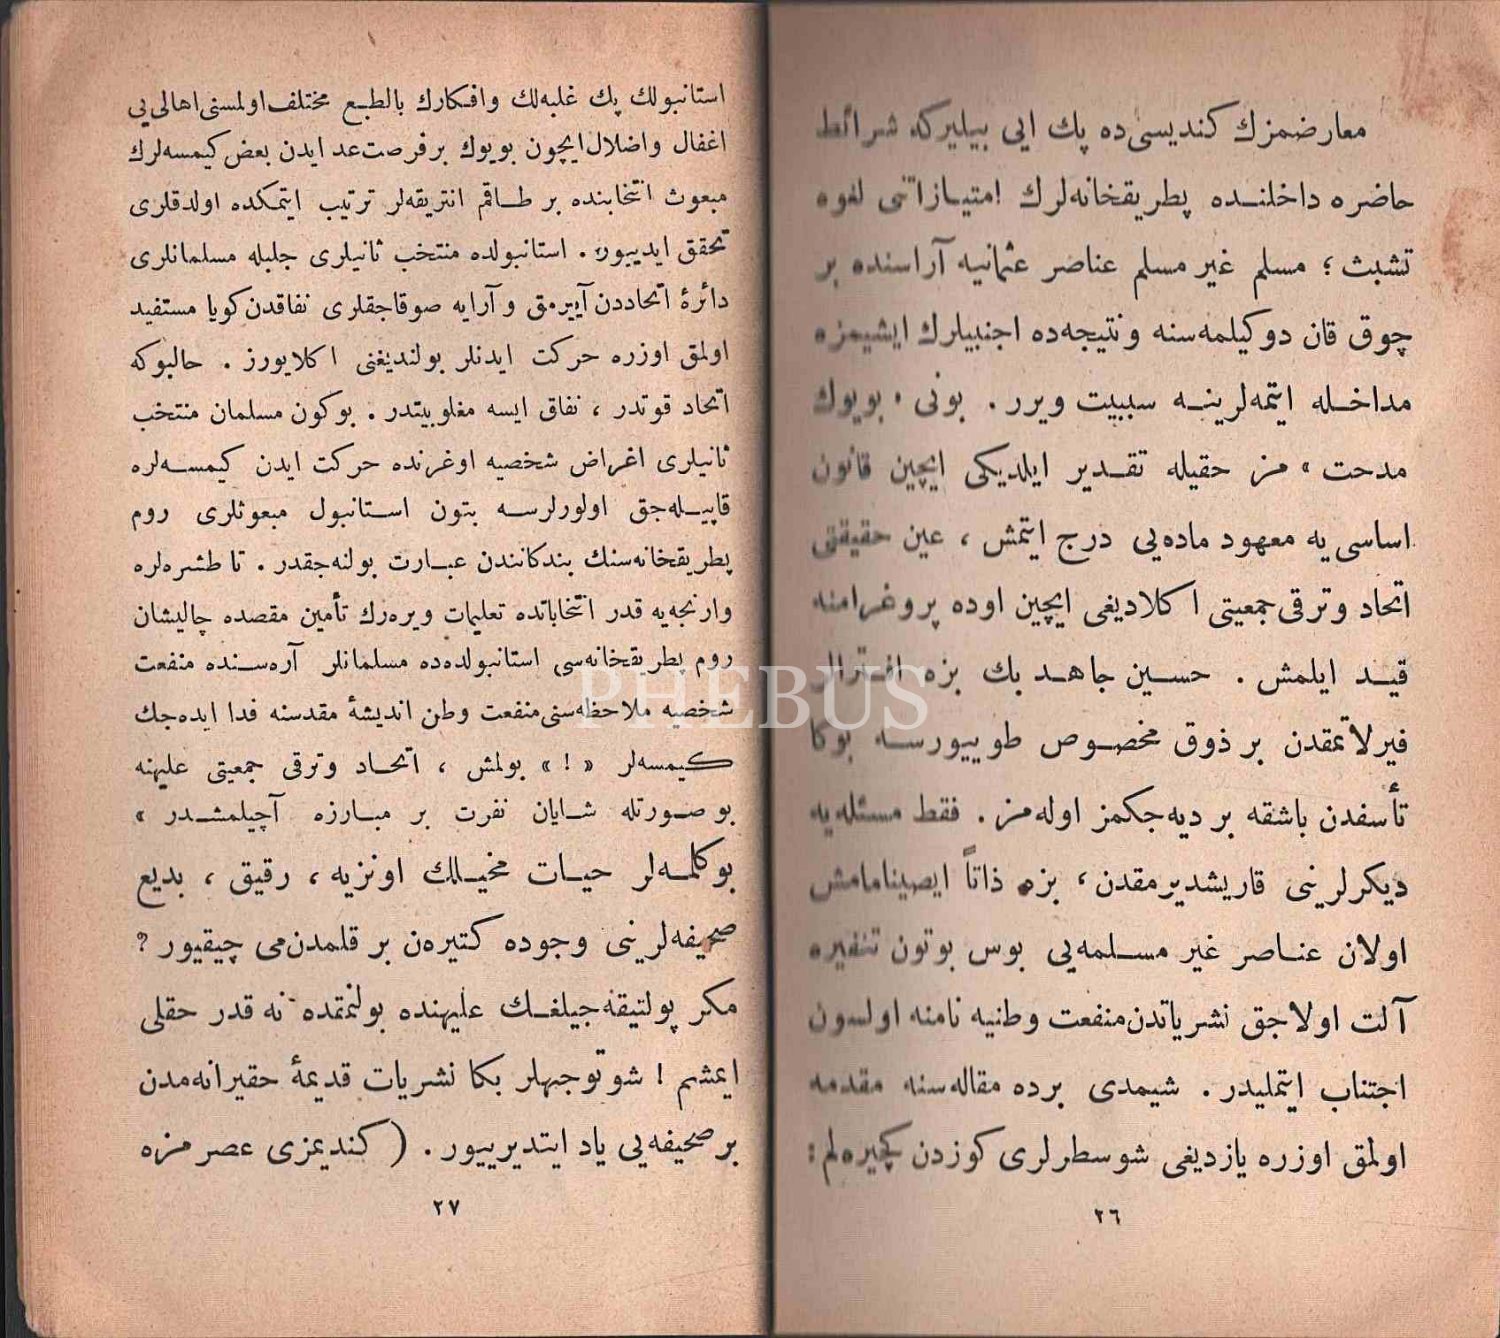 معارضمزك كنديسی‌ده پك ایی بیلیركه شرائط
حاضره داخلنده پطریقخانه‌لرك امتیازاتنی لغوه
تشبث ؛ مسلم غیر مسلم عناصر عثمانیه آراسنده بر
چوق قان دوكیلمه‌سنه ونتیجه‌ده اجنبیلرك ایشیمزه
مداخله ایتمه‌لرینه سببیت ویرر . بونی « بویوك
مدحت » مز حقیله تقدیر ایلدیكی ایچین قانون
اساسی یه معهود ماده‌یی درج ایتمش ، عین حقیقتی
اتحاد وترقی جمعیتی اكلادیغی ایچین اوده پروغرامنه
قید ایلمش . حسین جاهد بك بزه افترالر
فیرلاتمقدن بر ذوق مخصوص طوییورسه بوكا
تأسفدن باشقه بر دیه‌جكمز اوله‌مز . فقط مسئله‌یه
دیكرلرینی قاریشدیرمقدن ، بزه ذاتاً ایصینامامش
اولان عناصر غیر مسلمه‌یی بوس بوتون تنفیره
آلت اولاجق نشریاتدن منفعت وطنیه نامنه اولسون
اجتناب ایتملیدر . شیمدی برده مقاله‌سنه مقدمه
اولمق اوزره یازدیغی شو سطرلری كوزدن كچیره‌لم :
٢٦
استانبولك پك غلبه‌لك وافكارك بالطبع مختلف اولمسنی اهالی یی
اغفال واضلال ایچون بویوك بر فرصت عد ایدن بعض كیمسه‌لرك
مبعوث انتخابنده بر طاقم انتریقه‌لر ترتیب ایتمكده اولدقلری
تحقق ایدییور . استانبولده منتخب ثانیلری جلبله مسلمانلری
دائرهٔ اتحاددن آییرمق و آرایه صوقاجقلری نفاقدن كویا مستفید
اولمق اوزره حركت ایدنلر بولندیغنی اكلایورز . حالبوكه
اتحاد قوتدر ، نفاق ایسه مغلوبیتدر . بوكون مسلمان منتخب
ثانیلری اغراض شخصیه اوغرنده حركت ایدن كیمسه‌لره
قاپیله‌جق اولورلرسه بتون استانبول مبعوثلری روم
پطریقخانه‌سنك بندكانندن عبارت بولنه‌جقدر . تا طشره‌لره
وارنجه‌یه قدر انتخاباتده تعلیمات ویره‌رك تأمین مقصده چالیشان
روم پطریقخانه‌سی استانبولده‌ده مسلمانلر آره‌سنده منفعت
شخصیه ملاحظه‌سنی منفعت وطن اندیشهٔ مقدسنه فدا ایده‌جك
كیمسه‌لر « ! » بولمش ، اتحاد وترقی جمعیتی علیهنه
بو صورتله شایان نفرت بر مبارزه آچیلمشدر »
بو كلمه‌لر حیات مخیلك او نزیه ، رقیق ، بدیع
صحیفه‌لرینی وجوده كتیره‌ن بر قلمدن‌می چیقیور ؟
مكر پولتیقه‌جیلغك علیهنده بولنمقده نه قدر حقلی
ایمشم ! شو توجبهلر بكا نشریات قدیمهٔ حقیرانه‌مدن
بر صحیفه‌یی یاد ایتدیرییور . ( كندیمزی عصرمزه
٢٧
PHEBUS